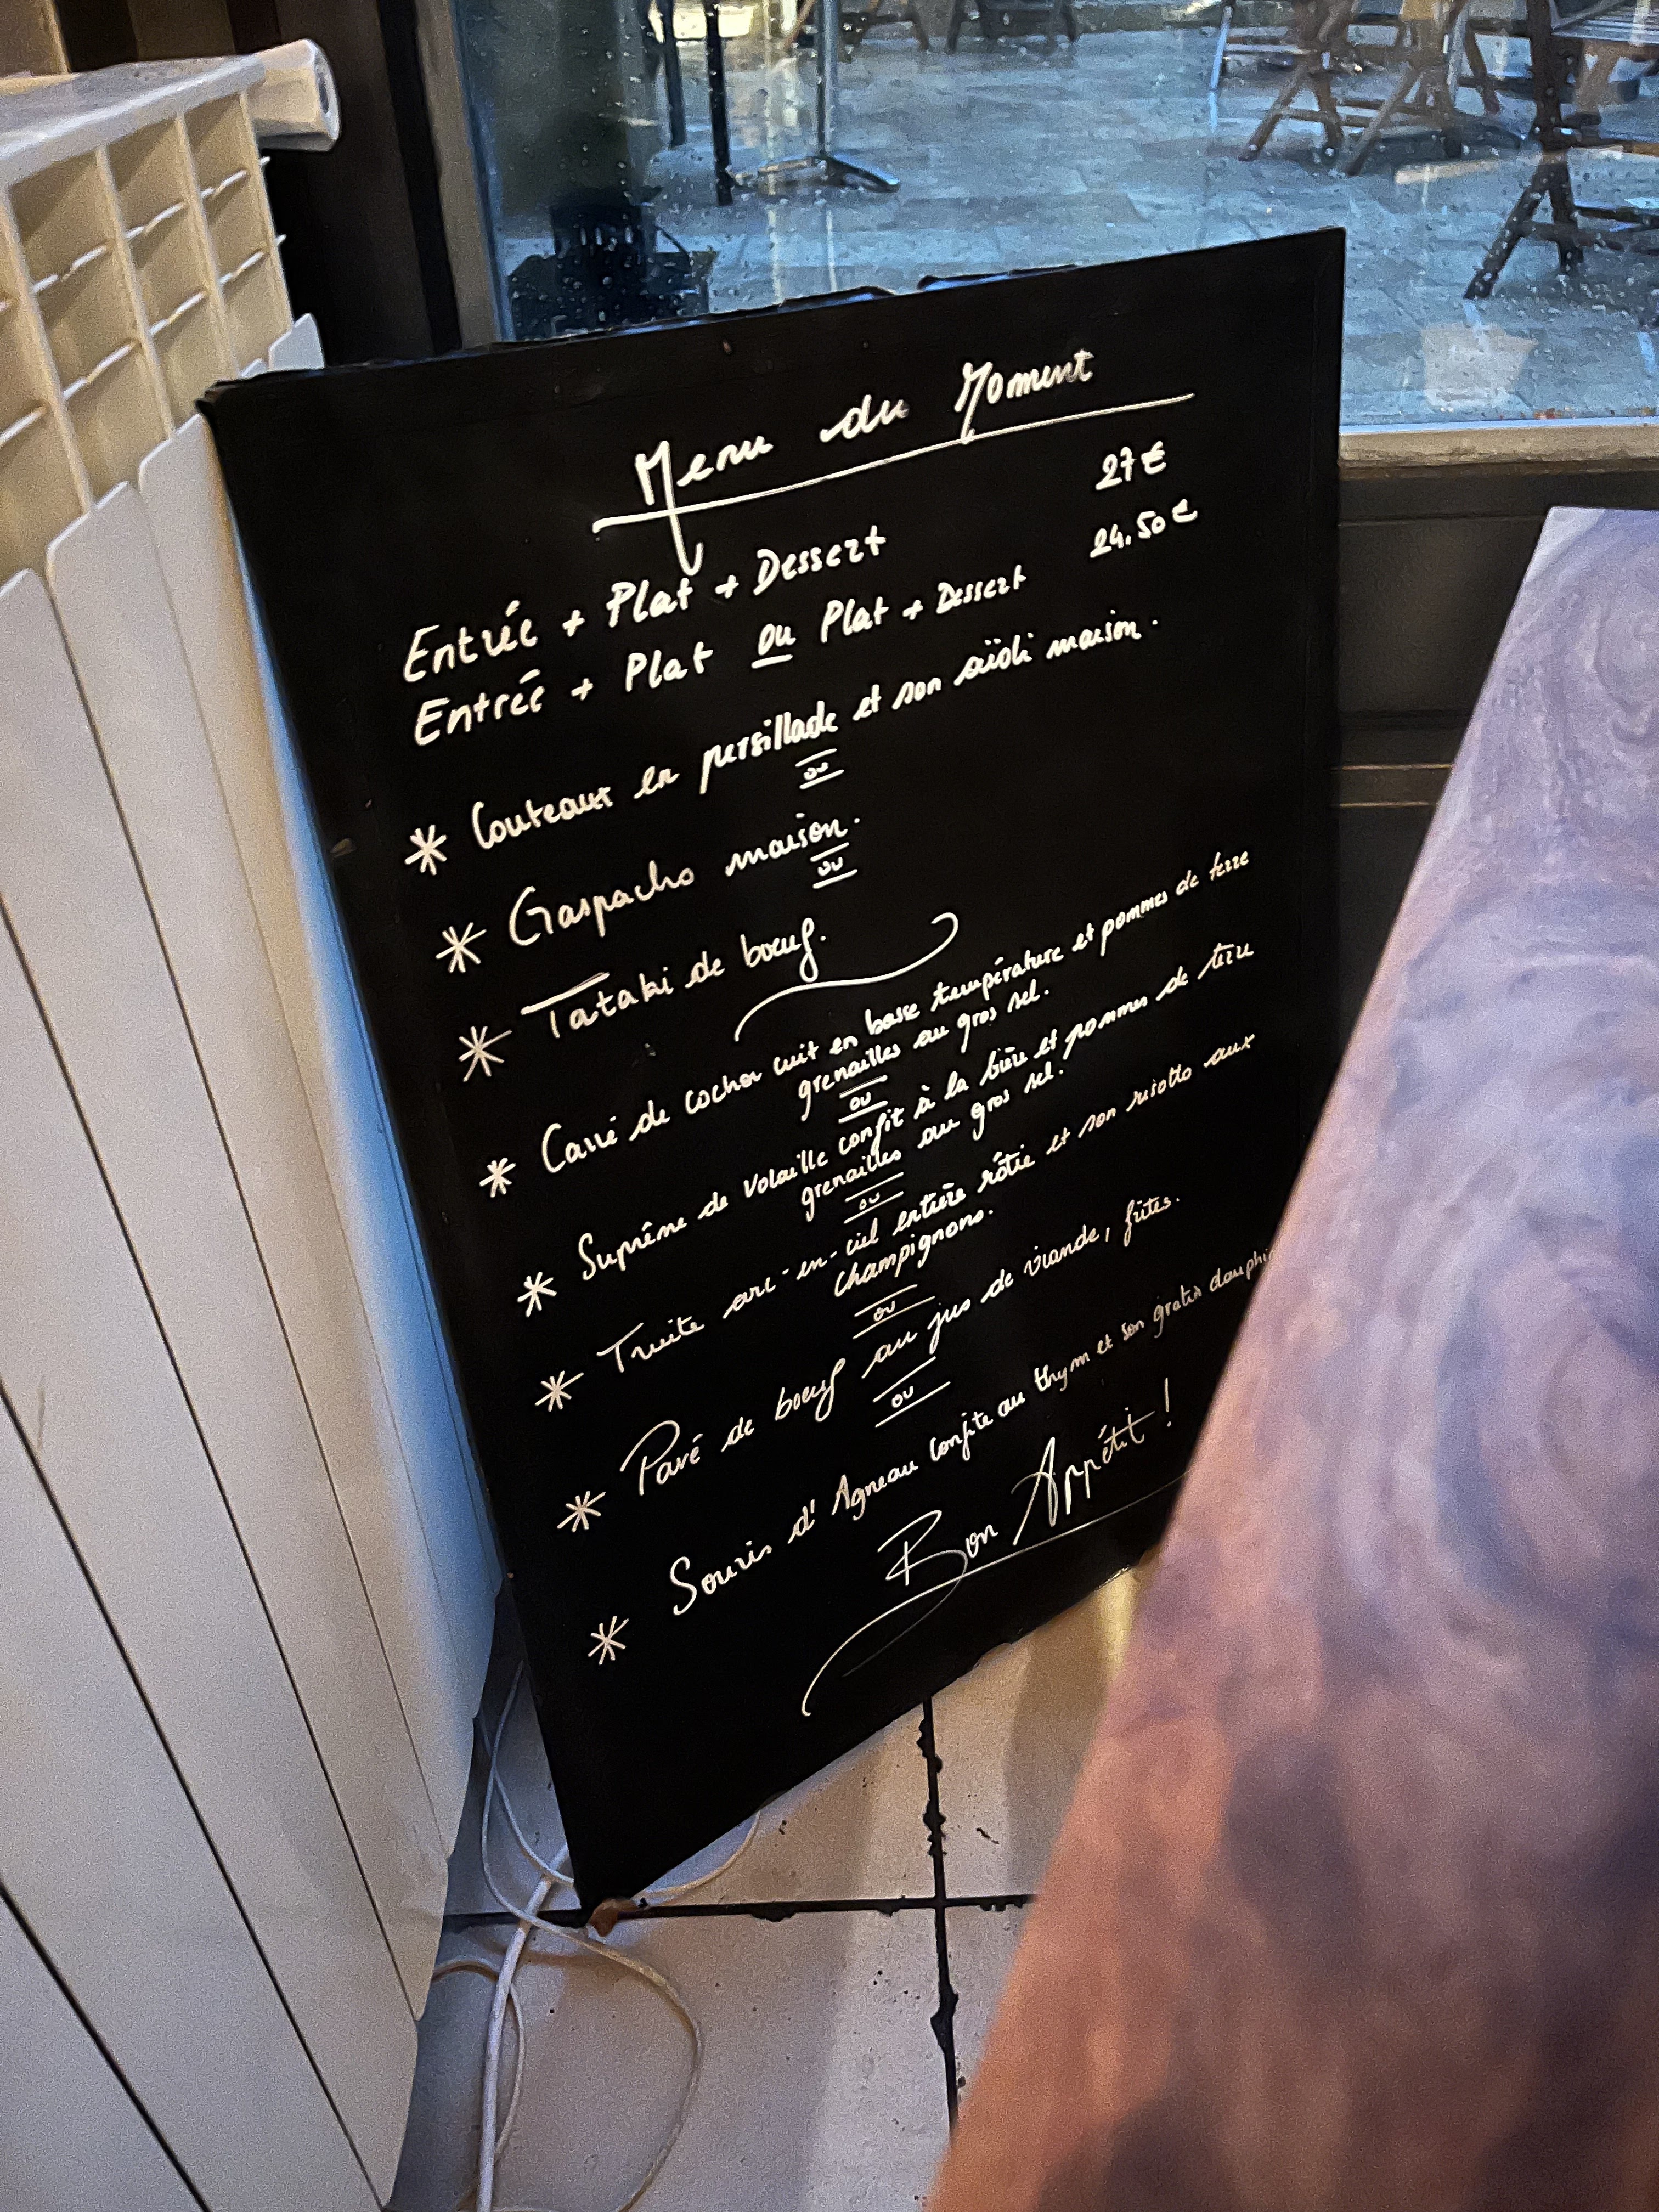 Menu du Moment
Entrée + Plat + Dessert 27€
Entrée + Plat ou Plat + Dessert 24.50€
* Couteaux en persillade et son aïoli maison.
ou
* Gaspacho maison.
ou
* Tataki de bœuf.
* Carré de cochon cuit en basse température et pommes de terre
grenailles au gros sel.
ou
* Suprême de volaille confit à la bière et pommes de terre
grenailles au gros sel.
ou
* Truite arc-en-ciel entière rôtie et son risotto aux
champignons.
ou
* Pavé de bœuf au jus de viande, frites.
ou
* Souris d'Agneau confite au thym et son gratin dauphin
Bon Appétit !